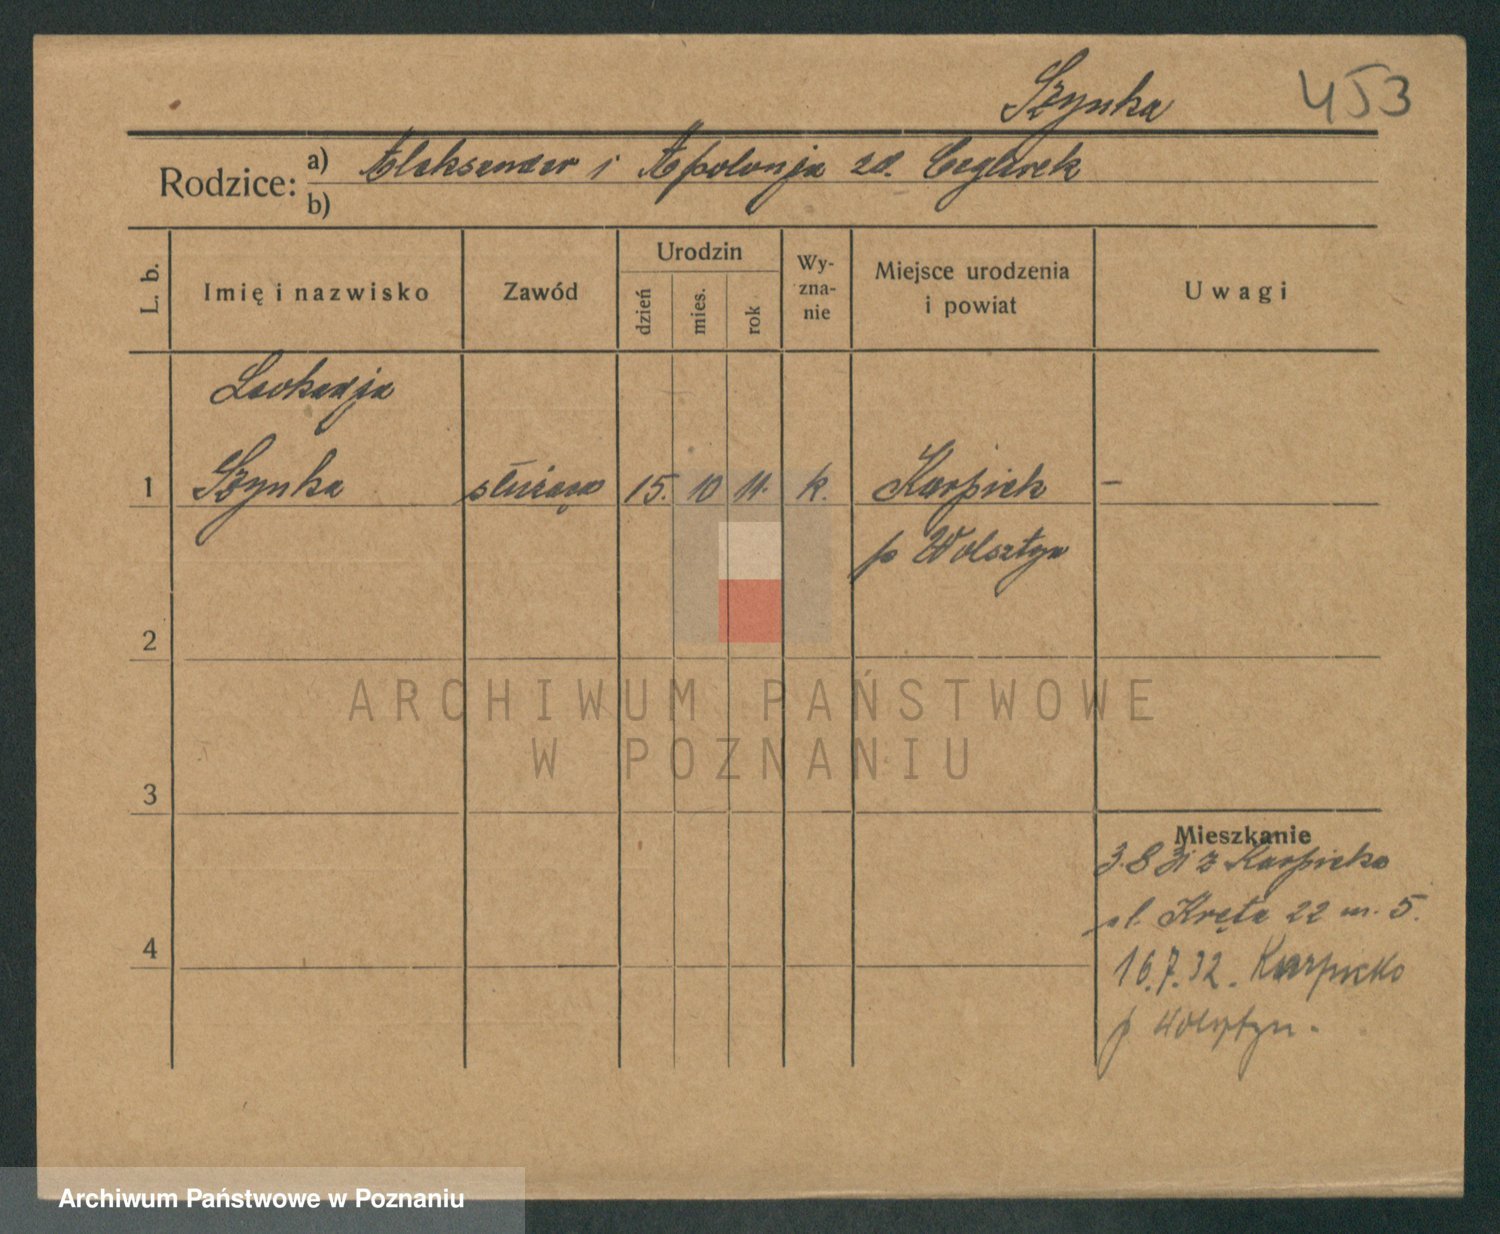 Szynka 453
Rodzice: a) Aleksander i Apolonja zd. Ceglarek
b)
L. b. Imię i nazwisko Zawód Urodzin dzień mies. rok Wy-zna-nie Miejsce urodzenia i powiat Uwagi
Leokadja
1 Szynka służąca 15. 10 11. k. Karpick –
p Wolsztyn
2
ARCHIWUM PAŃSTWOWE
W POZNANIU
3
Mieszkanie
3.8 31 z Karpicka
ul. Kręta 22 m. 5.
4
16.7.32. Karpicko
p Wolsztyn.
Archiwum Państwowe w Poznaniu